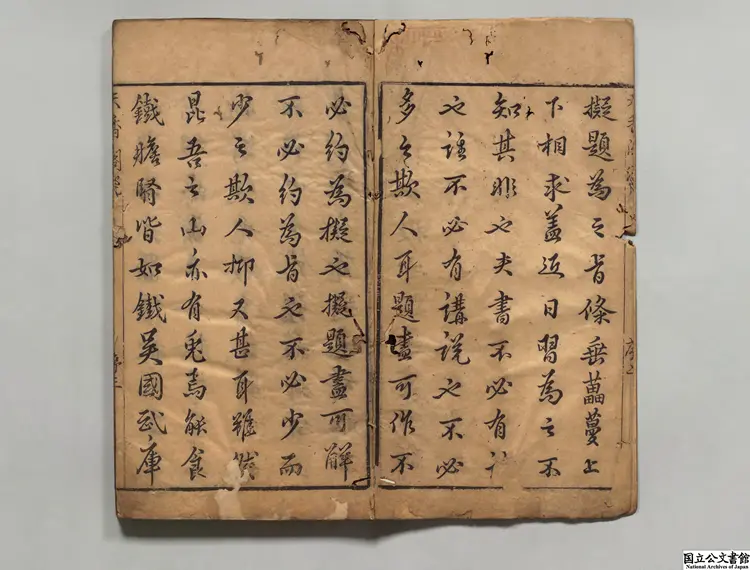 擬題為之旨條垂藟蔓上
下相求蓋近日習為之不
知其非也夫書不必有
之語不必有講說也不必
多之欺人耳題盡可作不
必約為擬也擬題盡可解
不必約為旨也不必少而
少之欺人抑又甚耳雖然
昆吾之山亦有兎焉能食
鐵膽腎皆如鐵吳國武庫
国立公文書館
National Archives of Japan